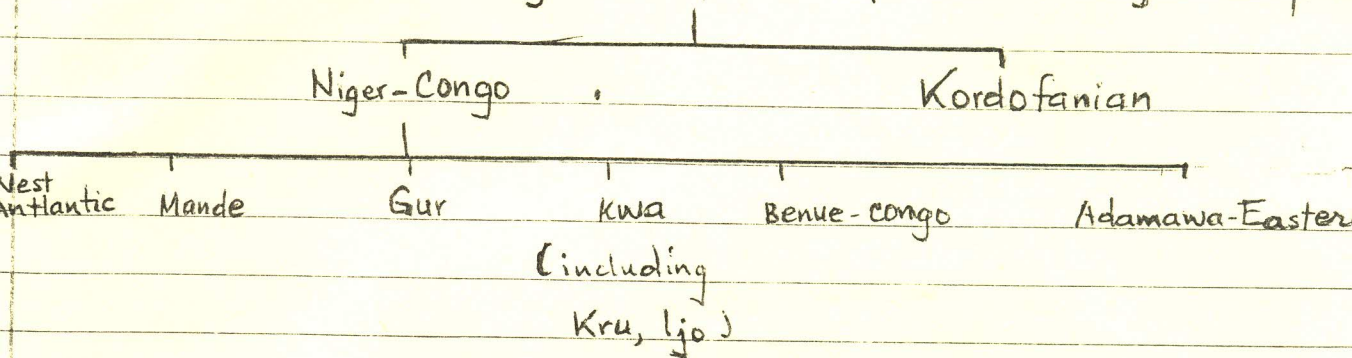 Niger-Congo Kordofanian
West
Antlantic Mande Gur Kwa Benue-congo Adamawa-Eastern
(including
Kru, Ijo)